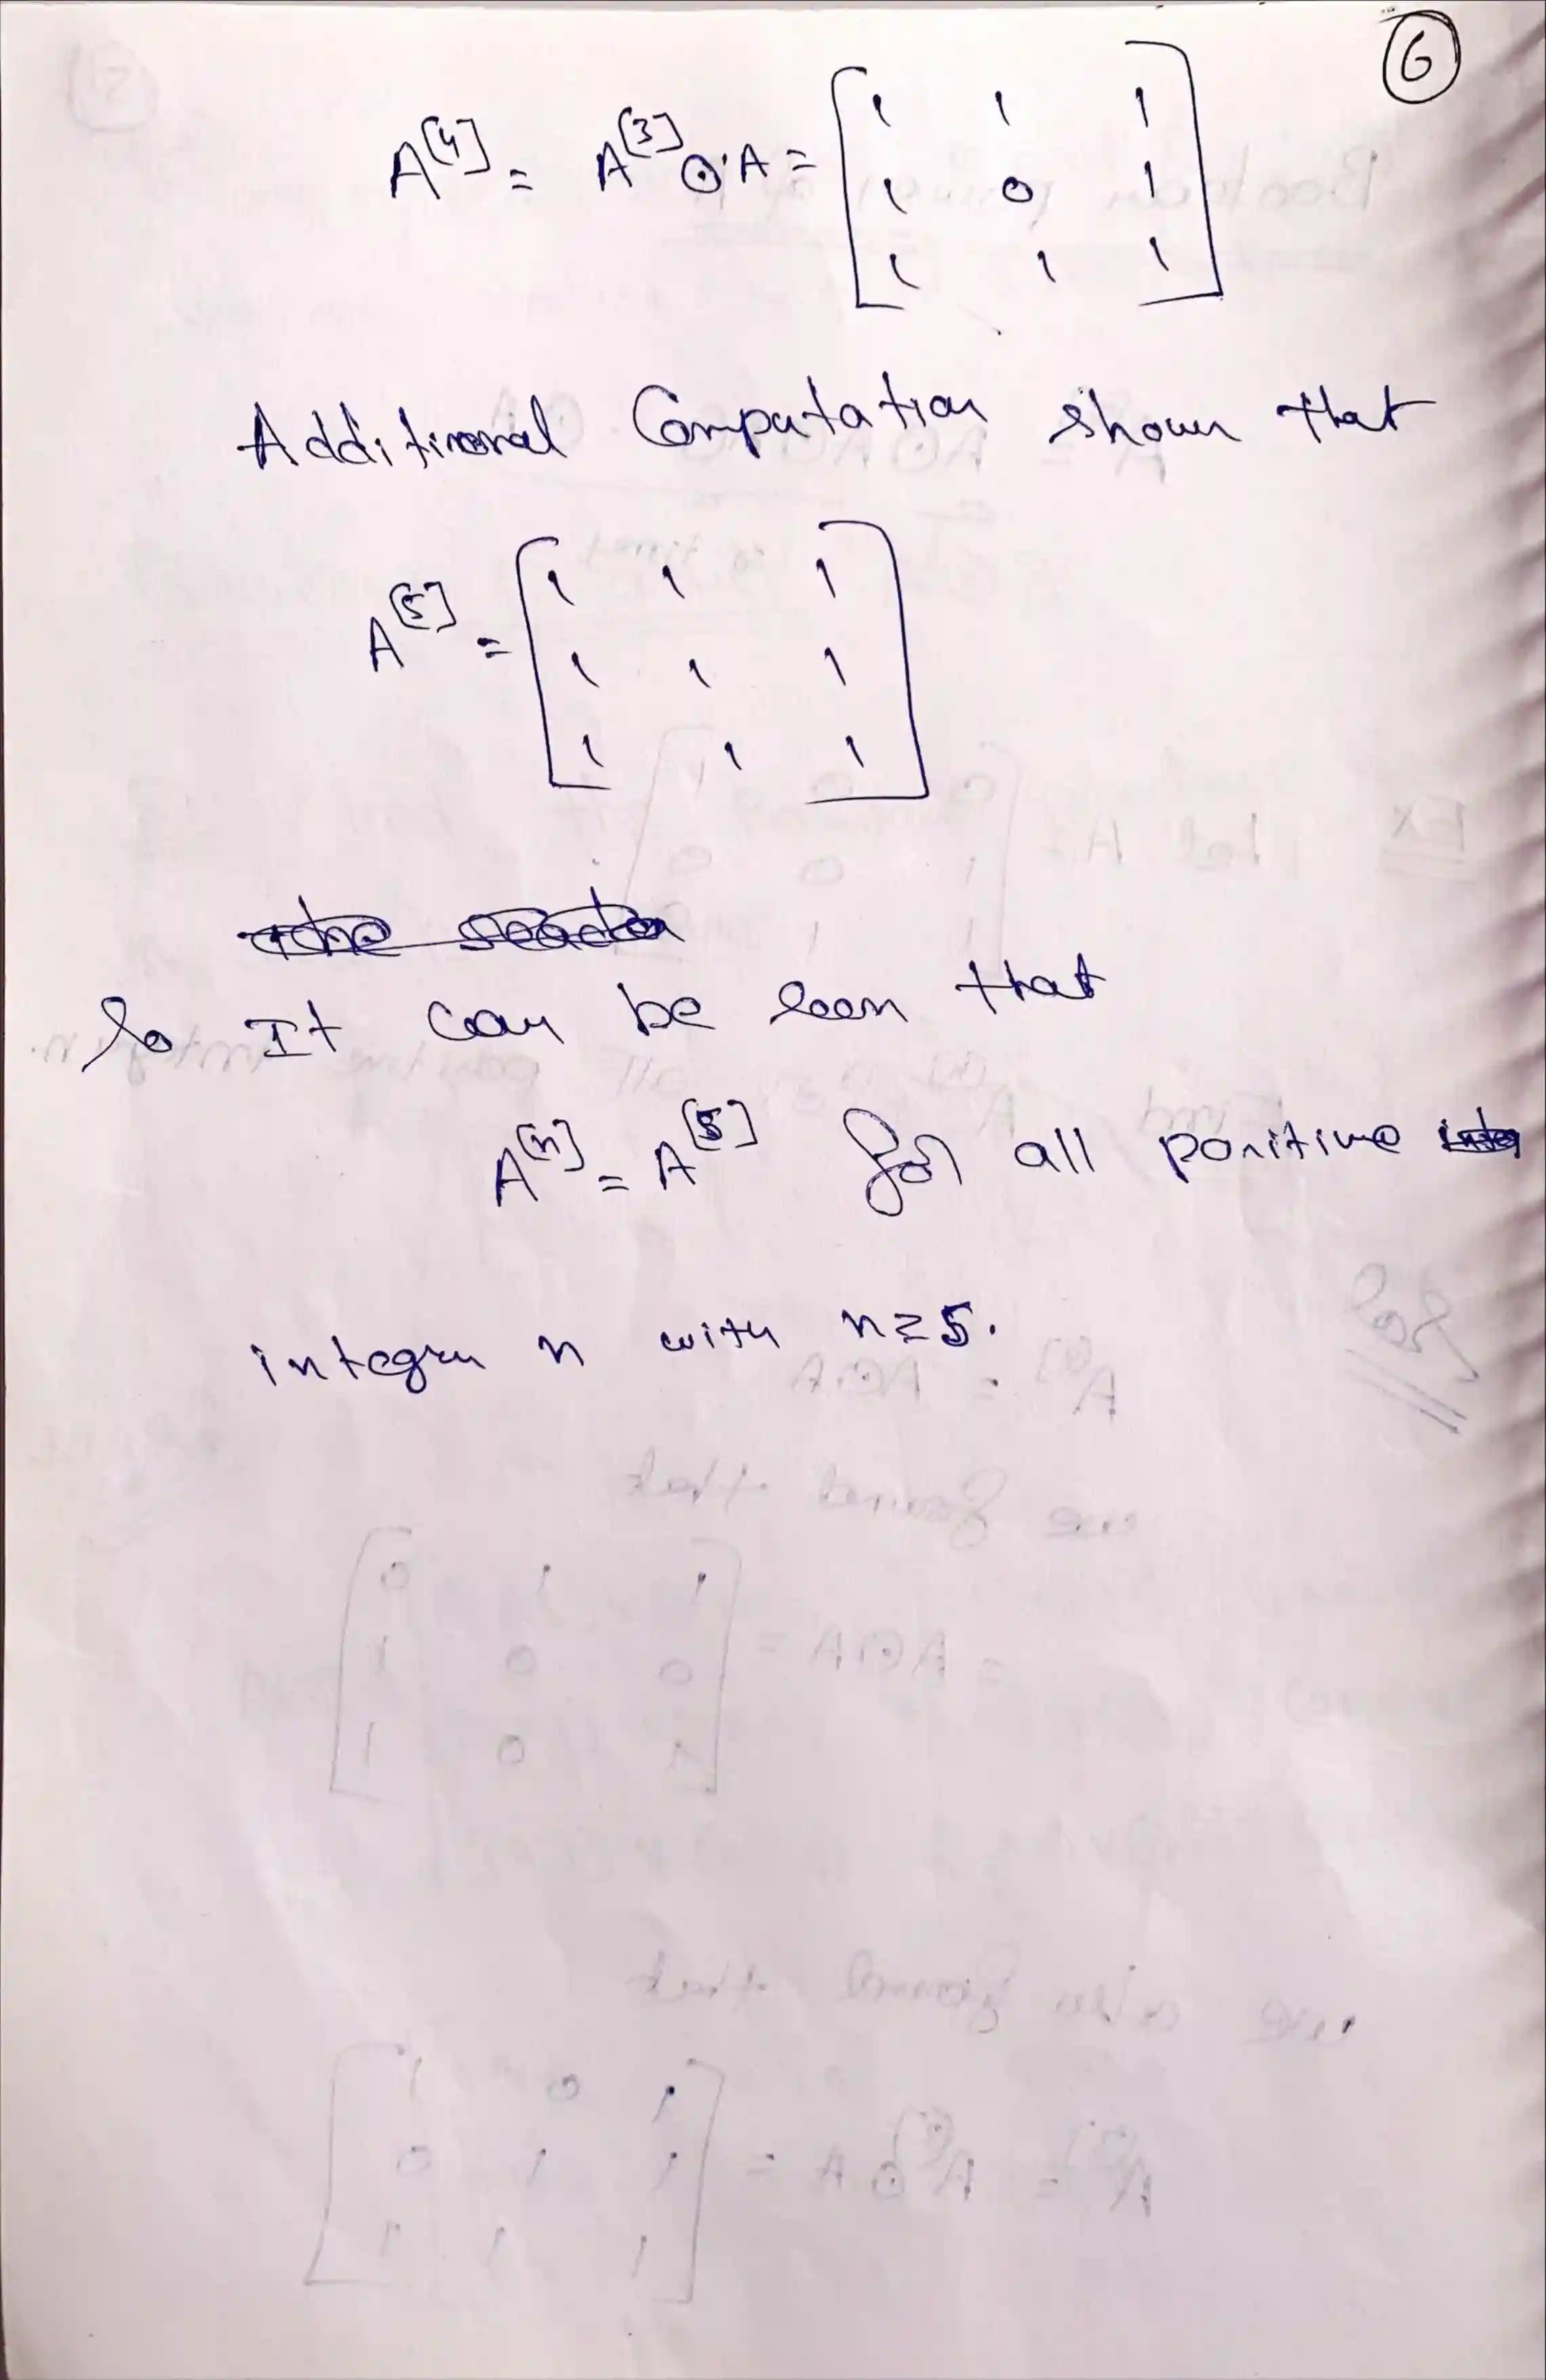 6
A^[4] = A^[3] ⊙ A = [ 1 1 1
1 0 1
1 1 1 ]
Additional Computation shows that
A^[5] = [ 1 1 1
1 1 1
1 1 1 ]
So It can be seen that
A^[n] = A^[5] for all positive
integer n with n ≥ 5.